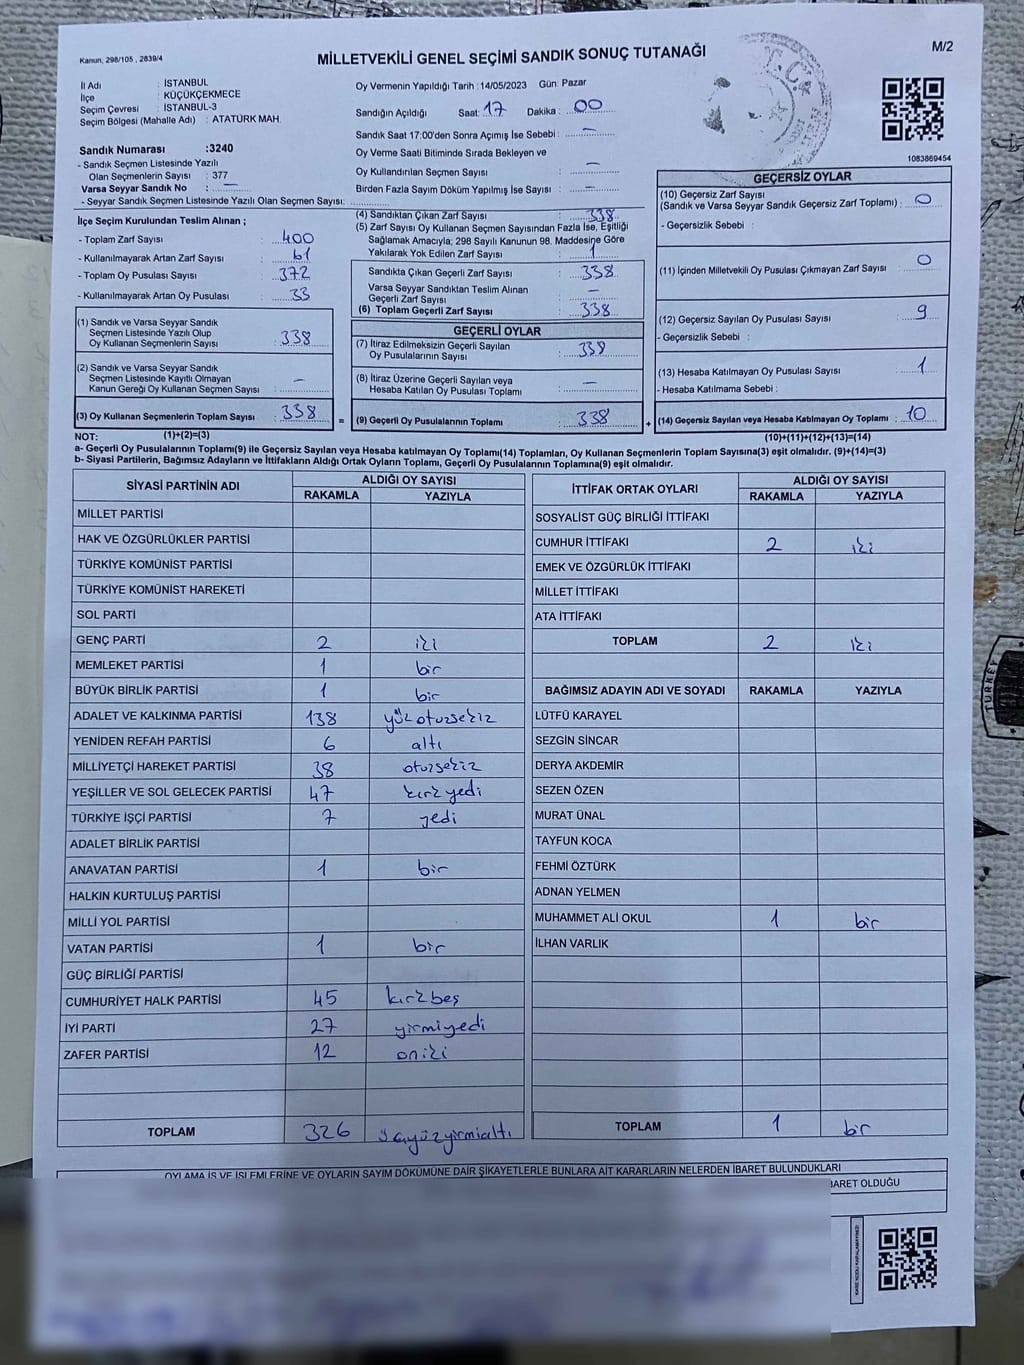 Kanun, 298/105 , 2839/4
MİLLETVEKİLİ GENEL SEÇİMİ SANDIK SONUÇ TUTANAĞI
M/2
İl Adı : İSTANBUL
İlçe : KÜÇÜKÇEKMECE
Seçim Çevresi : İSTANBUL-3
Seçim Bölgesi (Mahalle Adı) : ATATÜRK MAH.
Oy Vermenin Yapıldığı Tarih :14/05/2023 Gün: Pazar
Sandığın Açıldığı Saat: 17 Dakika : 00
Sandık Saat 17:00'den Sonra Açımış İse Sebebi : —
Oy Verme Saati Bitiminde Sırada Bekleyen ve
Oy Kullandırılan Seçmen Sayısı : —
Birden Fazla Sayım Döküm Yapılmış İse Sayısı : —
T.C.
1083869454
Sandık Numarası :3240
- Sandık Seçmen Listesinde Yazılı
Olan Seçmenlerin Sayısı : 377
Varsa Seyyar Sandık No : —
- Seyyar Sandık Seçmen Listesinde Yazılı Olan Seçmen Sayısı:
İlçe Seçim Kurulundan Teslim Alınan ;
- Toplam Zarf Sayısı : 400
- Kullanılmayarak Artan Zarf Sayısı : 61
- Toplam Oy Pusulası Sayısı : 372
- Kullanılmayarak Artan Oy Pusulası : 33
(1) Sandık ve Varsa Seyyar Sandık
Seçmen Listesinde Yazılı Olup
Oy Kullanan Seçmenlerin Sayısı : 338
(2) Sandık ve Varsa Seyyar Sandık
Seçmen Listesinde Kayıtlı Olmayan
Kanun Gereği Oy Kullanan Seçmen Sayısı : —
(3) Oy Kullanan Seçmenlerin Toplam Sayısı : 338
(1)+(2)=(3)
(4) Sandıktan Çıkan Zarf Sayısı : 338
(5) Zarf Sayısı Oy Kullanan Seçmen Sayısından Fazla İse, Eşitliği
Sağlamak Amacıyla; 298 Sayılı Kanunun 98. Maddesine Göre
Yakılarak Yok Edilen Zarf Sayısı : 1
Sandıkta Çıkan Geçerli Zarf Sayısı : 338
Varsa Seyyar Sandıktan Teslim Alınan
Geçerli Zarf Sayısı : —
(6) Toplam Geçerli Zarf Sayısı : 338
GEÇERLİ OYLAR
(7) İtiraz Edilmeksizin Geçerli Sayılan
Oy Pusulalarının Sayısı : 338
(8) İtiraz Üzerine Geçerli Sayılan veya
Hesaba Katılan Oy Pusulası Toplamı : —
= (9) Geçerli Oy Pusulalarının Toplamı : 338
GEÇERSİZ OYLAR
(10) Geçersiz Zarf Sayısı
(Sandık ve Varsa Seyyar Sandık Geçersiz Zarf Toplamı) : 0
- Geçersizlik Sebebi :
(11) İçinden Milletvekili Oy Pusulası Çıkmayan Zarf Sayısı : 0
(12) Geçersiz Sayılan Oy Pusulası Sayısı : 9
- Geçersizlik Sebebi :
(13) Hesaba Katılmayan Oy Pusulası Sayısı : 1
- Hesaba Katılmama Sebebi :
+ (14) Geçersiz Sayılan veya Hesaba Katılmayan Oy Toplamı : 10
(10)+(11)+(12)+(13)=(14)
NOT:
a- Geçerli Oy Pusulasının Toplamı(9) ile Geçersiz Sayılan veya Hesaba katılmayan Oy Toplamı(14) Toplamları, Oy Kullanan Seçmenlerin Toplam Sayısına(3) eşit olmalıdır. (9)+(14)=(3)
b- Siyasi Partilerin, Bağımsız Adayların ve İttifakların Aldığı Ortak Oyların Toplamı, Geçerli Oy Pusulalarının Toplamına(9) eşit olmalıdır.
SİYASİ PARTİNİN ADI ALDIĞI OY SAYISI
RAKAMLA YAZIYLA
MİLLET PARTİSİ
HAK VE ÖZGÜRLÜKLER PARTİSİ
TÜRKİYE KOMÜNİST PARTİSİ
TÜRKİYE KOMÜNİST HAREKETİ
SOL PARTİ
GENÇ PARTİ 2 iki
MEMLEKET PARTİSİ 1 bir
BÜYÜK BİRLİK PARTİSİ 1 bir
ADALET VE KALKINMA PARTİSİ 138 yüzotuzsekiz
YENİDEN REFAH PARTİSİ 6 altı
MİLLİYETÇİ HAREKET PARTİSİ 38 otuzsekiz
YEŞİLLER VE SOL GELECEK PARTİSİ 47 kırkyedi
TÜRKİYE İŞÇİ PARTİSİ 7 yedi
ADALET BİRLİK PARTİSİ
ANAVATAN PARTİSİ 1 bir
HALKIN KURTULUŞ PARTİSİ
MİLLİ YOL PARTİSİ
VATAN PARTİSİ 1 bir
GÜÇ BİRLİĞİ PARTİSİ
CUMHURİYET HALK PARTİSİ 45 kırkbeş
İYİ PARTİ 27 yirmiyedi
ZAFER PARTİSİ 12 oniki
TOPLAM 326 üçyüzyirmialtı
İTTİFAK ORTAK OYLARI ALDIĞI OY SAYISI
RAKAMLA YAZIYLA
SOSYALİST GÜÇ BİRLİĞİ İTTİFAKI
CUMHUR İTTİFAKI 2 iki
EMEK VE ÖZGÜRLÜK İTTİFAKI
MİLLET İTTİFAKI
ATA İTTİFAKI
TOPLAM 2 iki
BAĞIMSIZ ADAYIN ADI VE SOYADI RAKAMLA YAZIYLA
LÜTFÜ KARAYEL
SEZGİN SİNCAR
DERYA AKDEMİR
SEZEN ÖZEN
MURAT ÜNAL
TAYFUN KOCA
FEHMİ ÖZTÜRK
ADNAN YELMEN
MUHAMMET ALİ OKUL 1 bir
İLHAN VARLIK
TOPLAM 1 bir
OYLAMA İŞ VE İŞLEMLERİNE VE OYLARIN SAYIM DÖKÜMÜNE DAİR ŞİKAYETLERLE BUNLARA AİT KARARLARIN NELERDEN İBARET BULUNDUKLARI
BARET OLDUĞU
TURKEY